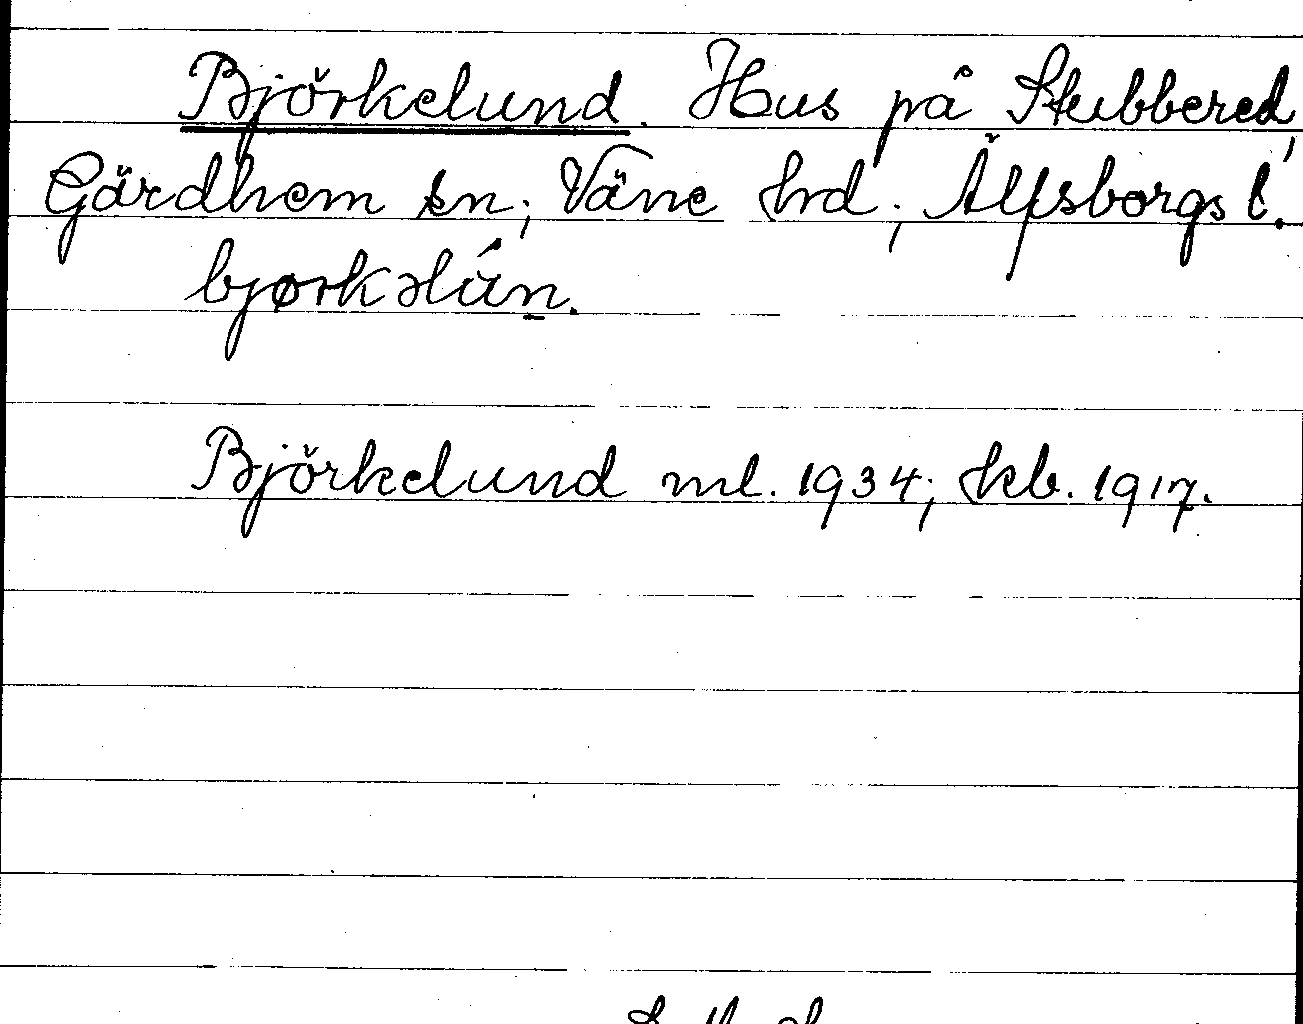 Björkelund. Hus på Stubbered,
Gärdhem sn; Väne hrd; Älfsborgs l.
bjørkəlún.
Björkelund ml. 1934; kb. 1917.